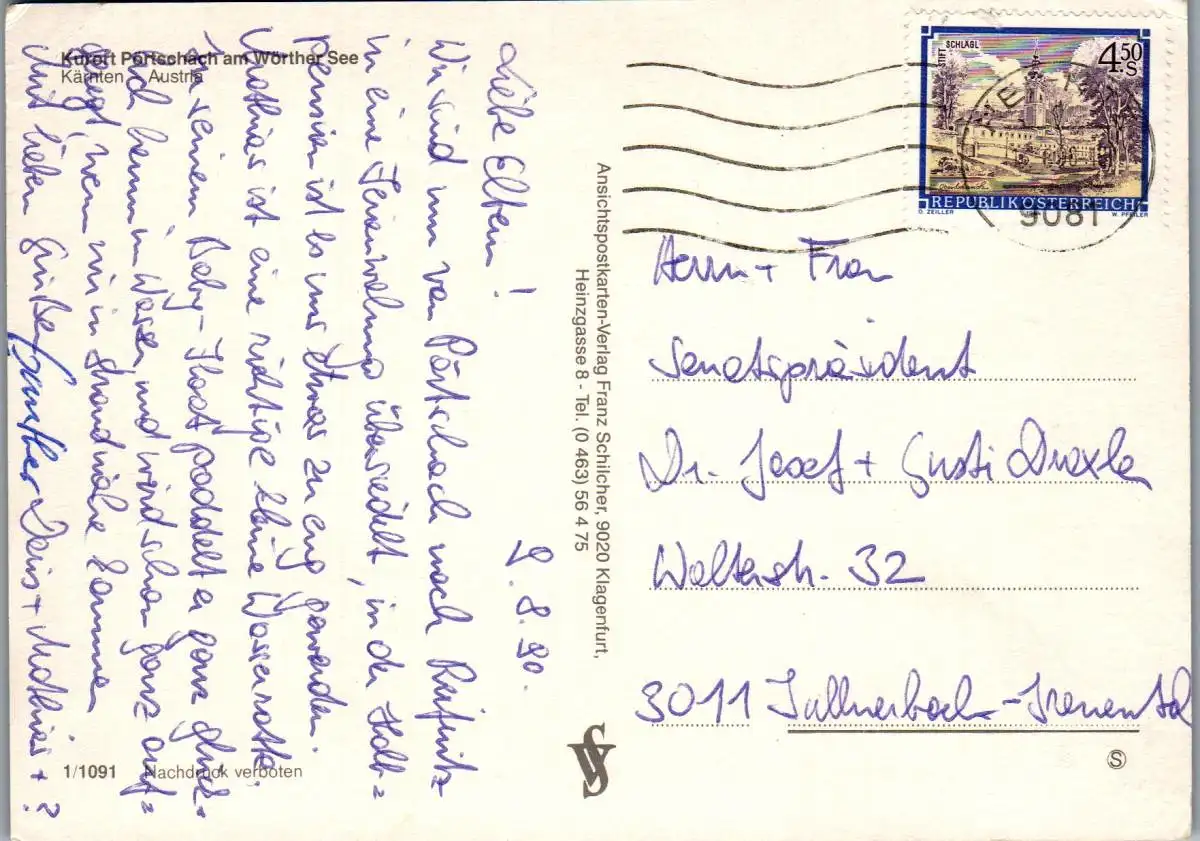 Kurort Pörtschach am Wörther See
Kärnten Austria
9.8.90.
Liebe Eltern!
Wir sind nun von Pörtschach nach Reifnitz
in eine Ferienwohnung übersiedelt, in der Halb=
pension ist es uns etwas zu eng geworden.
Mathias ist eine richtige kleine Wasserratte.
In seinem Baby-Boot paddelt er ganz glück-
lich herum im Wasser, und wird schon ganz auf=
geregt, wenn wir in Strandnähe kommen
Mit lieben Grüßen Gunther Doris + Mathias + ?
1/1091 Nachdruck verboten
Ansichtspostkarten-Verlag Franz Schilcher, 9020 Klagenfurt,
Heinzgasse 8 - Tel. (0 463) 56 4 75
SV
STIFT SCHLÄGL
4.50 S
REPUBLIK ÖSTERREICH
O. ZEILLER W. PFEILER
9081
Herrn + Frau
Senatspräsident
Dr. Josef + Gusti Draxler
Walterstr. 32
3011 Tullnerbach-Irenental
S